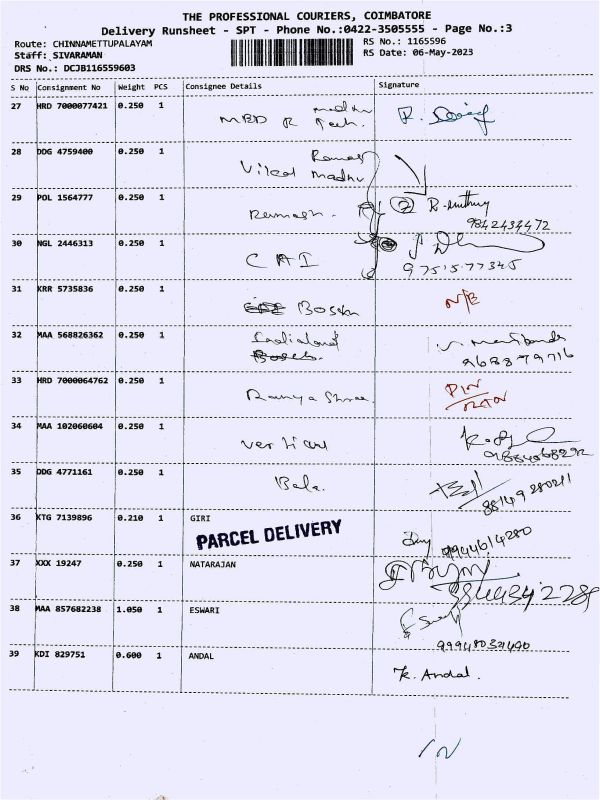 THE PROFESSIONAL COURIERS, COIMBATORE
Delivery Runsheet - SPT - Phone No.:0422-3505555 - Page No.:3
Route: CHINNAMETTUPALAYAM RS No.: 1165596
Staff: SIVARAMAN RS Date: 06-May-2023
DRS No.: DCJB116559603
S No Consignment No Weight PCS Consignee Details Signature
27 HRD 7000077421 0.250 1 MBD R Tech. madhu
28 DDG 4759400 0.250 1 Madhu
29 POL 1564777 0.250 1 Ramesh. 2 R. muthu 9842434472
30 NGL 2446313 0.250 1 CAI 9751577345
31 KRR 5735836 0.250 1 Bosch N/B
32 MAA 568826362 0.250 1
33 HRD 7000064762 0.250 1 Ramya Shree
34 MAA 102060604 0.250 1
35 DDG 4771161 0.250 1 Bala. 88149280211
36 KTG 7139896 0.210 1 GIRI 9944614280
PARCEL DELIVERY
37 XXX 19247 0.250 1 NATARAJAN
38 MAA 857682238 1.050 1 ESWARI
39 KDI 829751 0.600 1 ANDAL K. Andal.